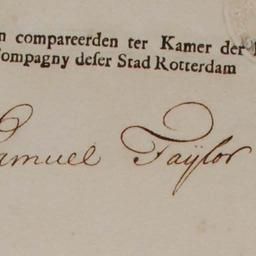 n compareerden ter Kamer der
Compagny deſer Stad Rotterdam
Samuel Taÿlor